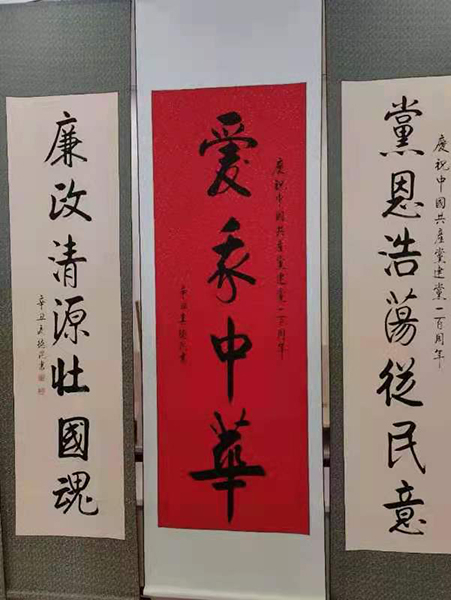 慶祝中國共產黨建黨一百周年
黨恩浩蕩從民意
慶祝中國共產黨建黨一百周年
愛我中華
辛丑書
廉政清源壯國魂
辛丑書